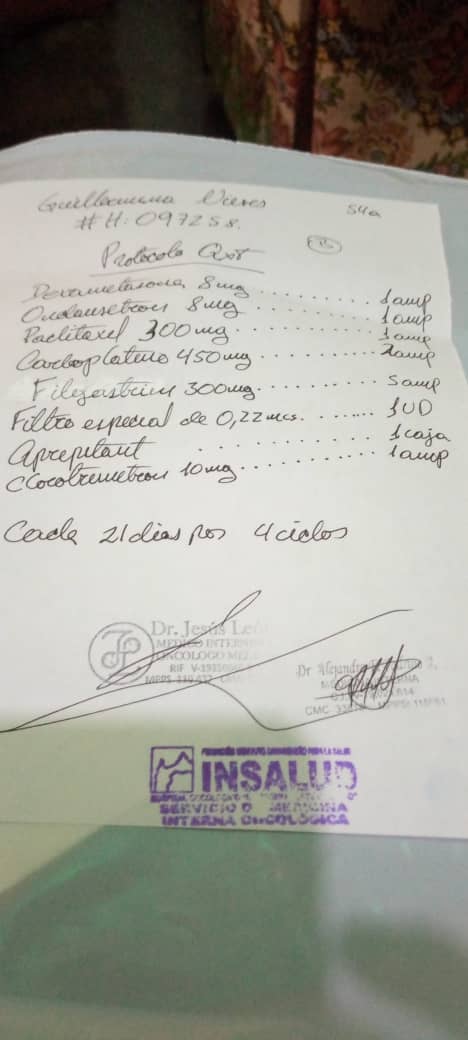 Guillermina Nieves 54a
#H: 097258.
Protocolo Qxt
Dexametasona 8mg........ 1amp
Ondansetron 8mg........ 1amp
Paclitaxel 300mg........ 1amp
Carboplatino 450mg........ 2amp
Filgastrim 300mg........ 5amp
Filtro especial de 0,22mcs....... 1UD
Aprepitant ........ 1caja
Clorotrimetron 10mg........ 1amp
Cada 21 dias por 4 ciclos
Dr. Jesús León
MEDICO INTERN
ONCOLOGO
RIF V-
MPPS 110.
Dr Alejandro
CMC
INSALUD
SERVICIO D MEDICINA
INTERNA ONCOLÓGICA